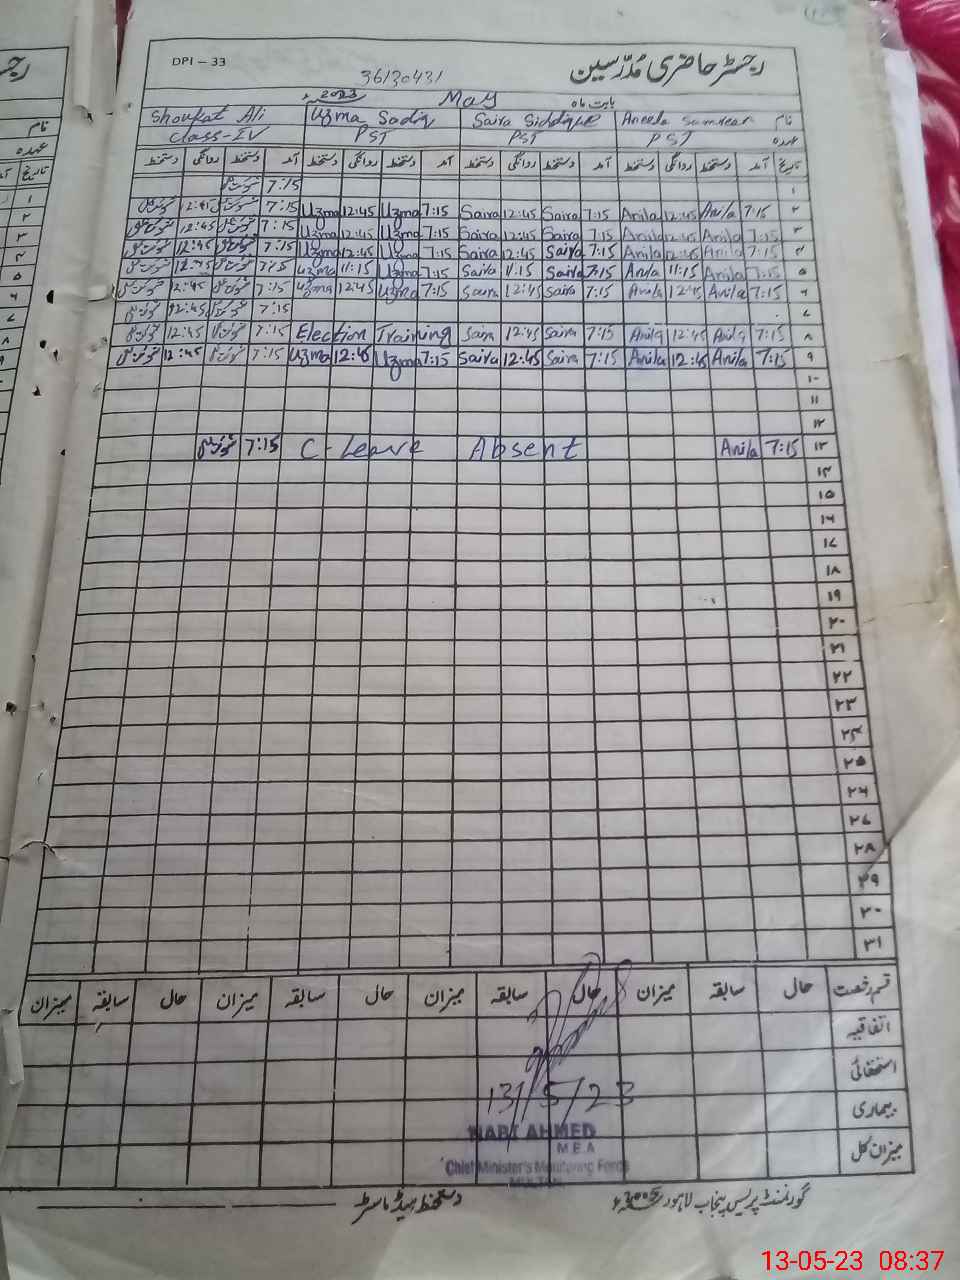 DPI – 33
رجسٹر حاضری مُدرّسین
36130431
بابت ماہ May 2023ء
نام Aneela Samreen Saira Siddique Uzma Sadiq Shoukat Ali
عہدہ PST PST PST Class-IV
تاریخ آمد دستخط روانگی دستخط آمد دستخط روانگی دستخط آمد دستخط روانگی دستخط آمد دستخط روانگی دستخط
۱ 7:15
۲ 7:15 Anila 12:45 Anila 7:15 Saira 12:45 Saira 7:15 Uzma 12:45 Uzma 7:15 12:45
۳ 7:15 Anila 12:45 Anila 7:15 Saira 12:45 Saira 7:15 Uzma 12:45 Uzma 7:15 12:45
۴ 7:15 Anila 12:45 Anila 7:15 Saira 12:45 Saira 7:15 Uzma 12:45 Uzma 7:15 12:45
۵ 7:15 Anila 11:15 Anila 7:15 Saira 11:15 Saira 7:15 Uzma 11:15 Uzma 7:15 12:45
۶ 7:15 Anila 12:45 Anila 7:15 Saira 12:45 Saira 7:15 Uzma 12:45 Uzma 7:15 12:45
۷ 7:15 12:45
۸ 7:15 Anila 12:45 Anila 7:15 Saira 12:45 Saira Election Training 7:15 12:45
۹ 7:15 Anila 12:45 Anila 7:15 Saira 12:45 Saira 7:15 Uzma 12:45 Uzma 7:15 12:45
۱۰
۱۱
۱۲
۱۳ 7:15 Anila Absent C-Leave 7:15
۱۴
۱۵
۱۶
۱۷
۱۸
۱۹
۲۰
۲۱
۲۲
۲۳
۲۴
۲۵
۲۶
۲۷
۲۸
۲۹
۳۰
۳۱
قسم رخصت حال سابقہ میزان حال سابقہ میزان حال سابقہ میزان حال سابقہ میزان
اتفاقیہ
استحقاقی
بیماری
میزان کل
13/5/23
NABI AHMED
M.E.A
Chief Minister's Monitoring Force
MULTAN
گورنمنٹ پریس پنجاب لاہور
دستخط ہیڈ ماسٹر
13-05-23 08:37